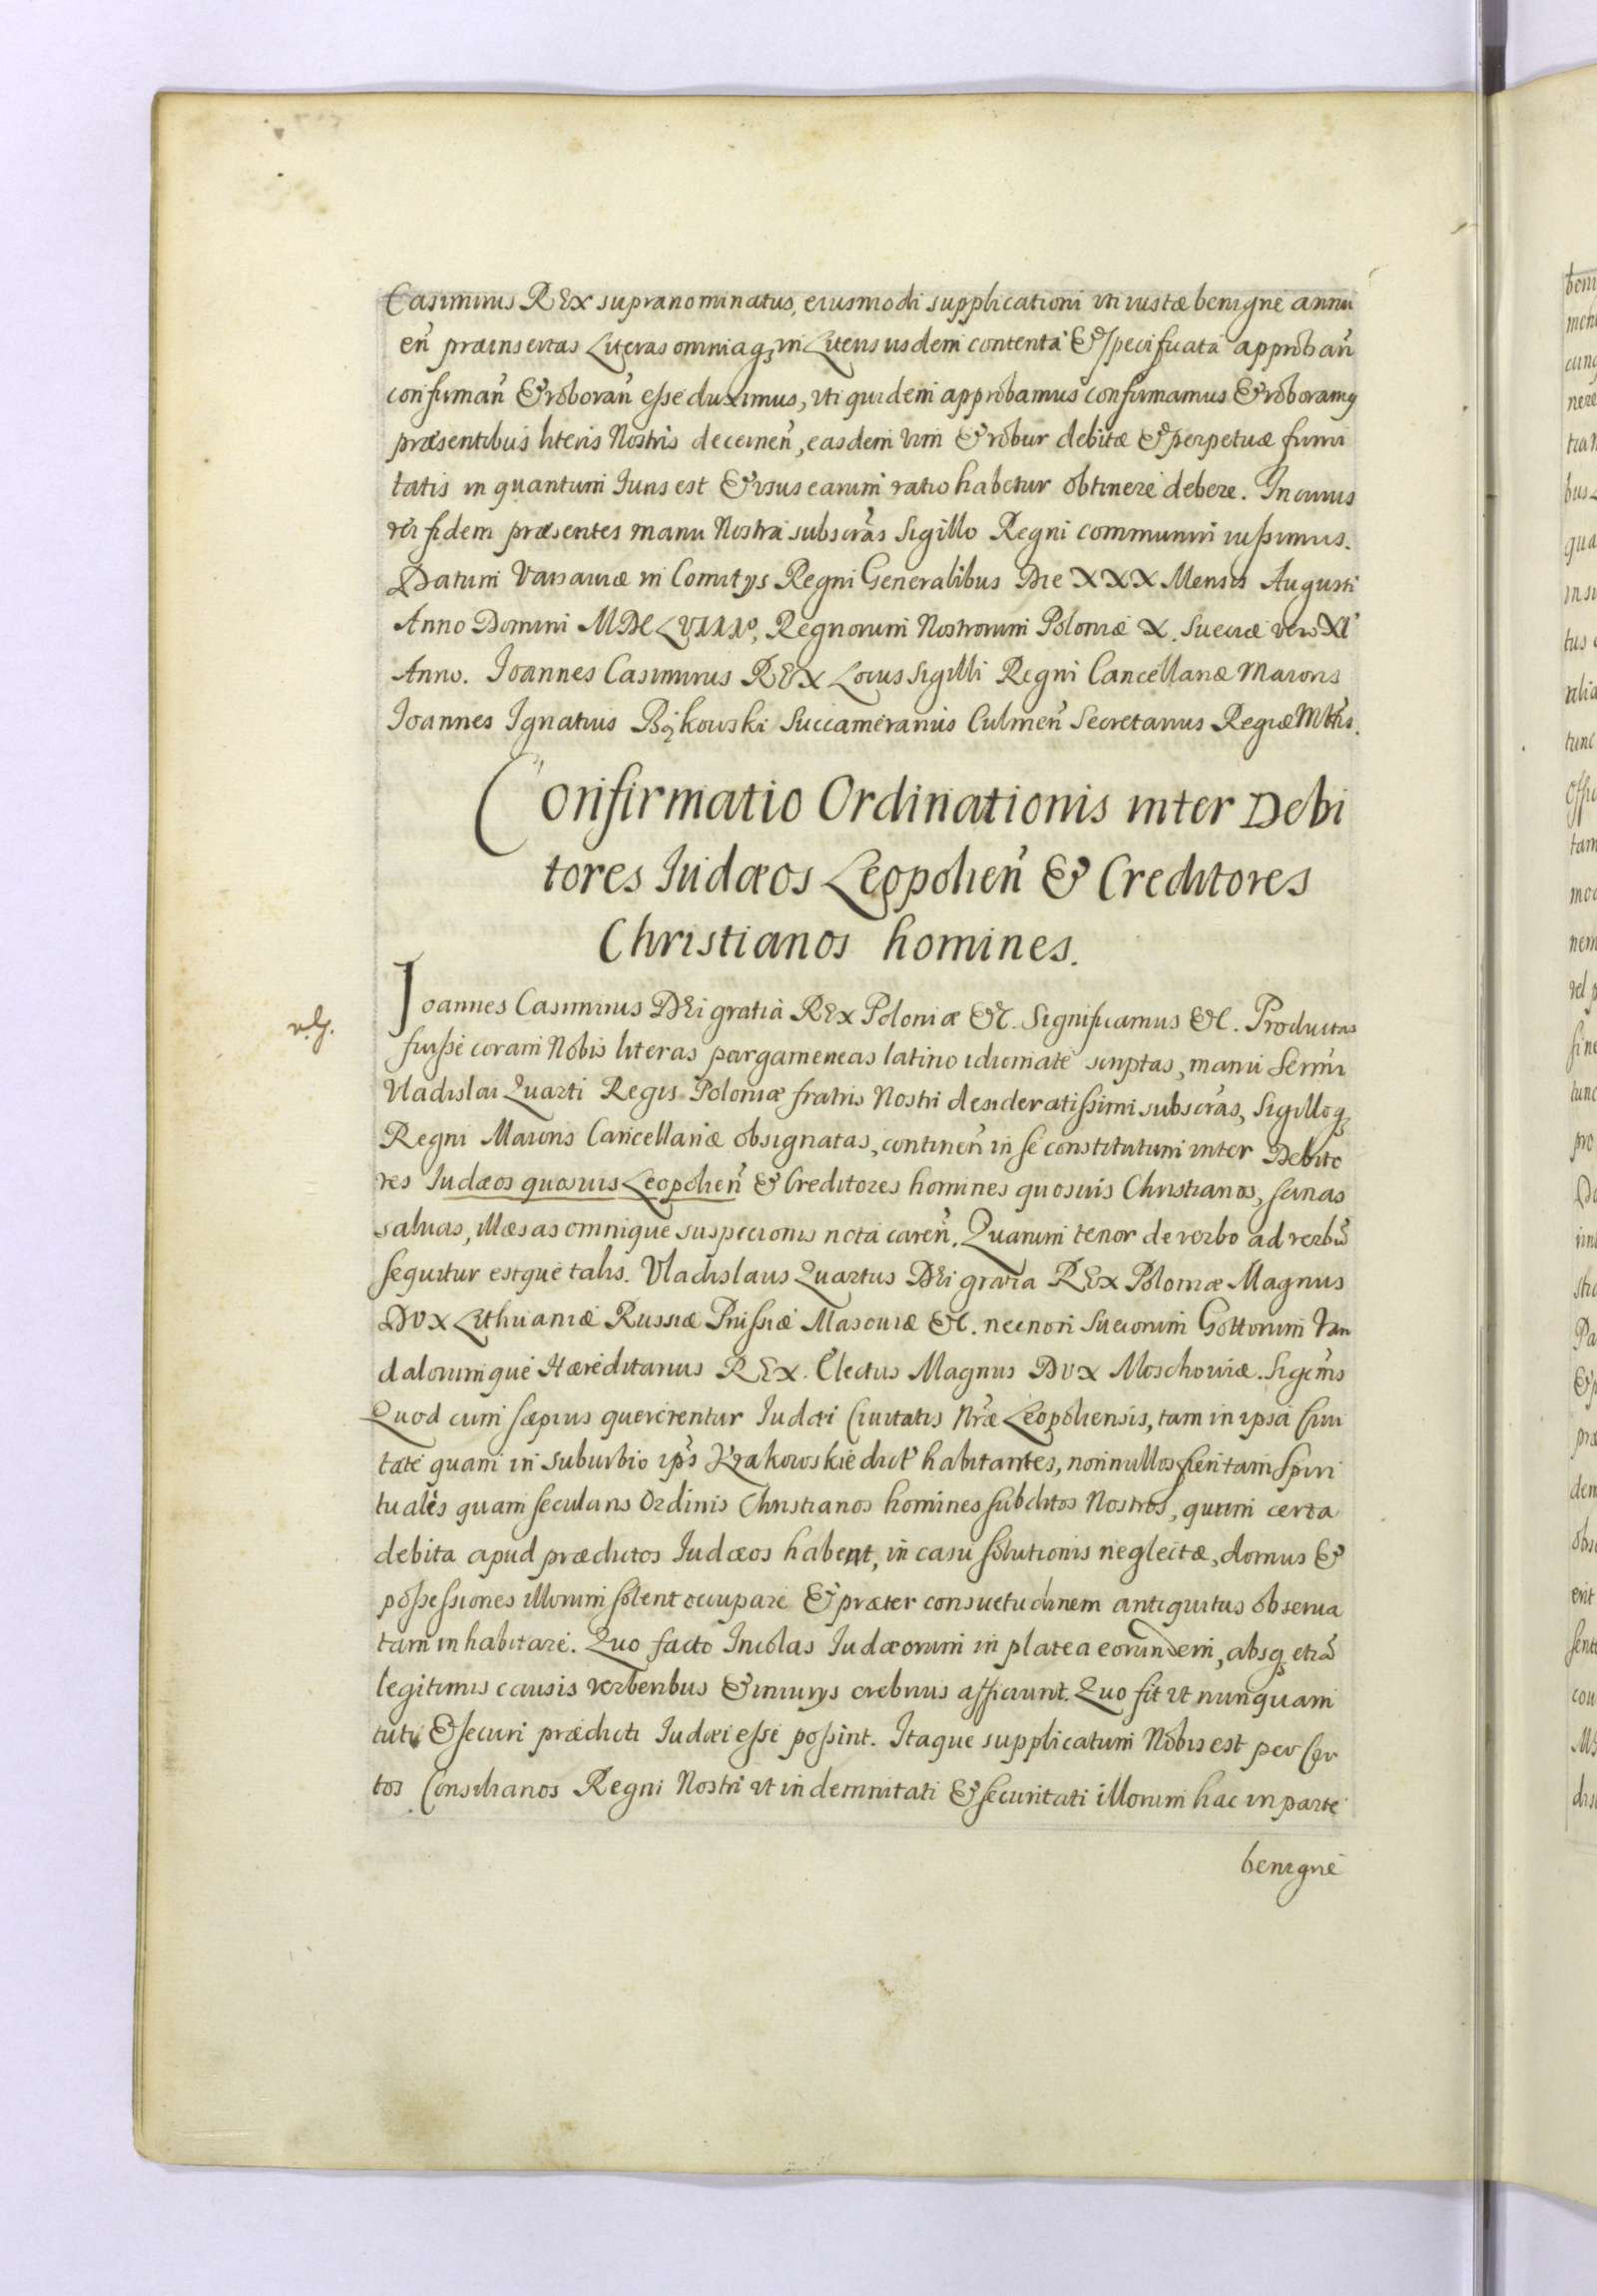 Casimirus REx supranominatus, eiusmodi supplicationi uti iustæ benignè annu
eñ præinsertas Literas omniaq; in Literis iisdem contenta & specificata approbañ
confirmañ & roborañ esse duximus, uti quidem approbamus confirmamus & roboramq
præsentibus literis Nostris decerneñ, easdem vim & robur debitæ & perpetuæ firmi
tatis in quantum Iuris est & usus earum ratio habetur obtinere debere. In cuius
rei fidem præsentes manu Nostra subscr̃as Sigillo Regni communiri iussimus.
Datum Varsaviæ in Comitijs Regni Generalibus Die XXX Mensis Augusti
Anno Domini MDCLVIIIº, Regnorum Nostrorum Poloniæ X. Sueciæ vero XI
Anno. Ioannes Casimirus REX Locus Sigilli Regni Cancellariæ Maioris
Ioannes Ignatius Bąkowski Succamerarius Culmeñ Secretarius Regiæ Mttis.
Confirmatio Ordinationis inter Debi
tores Iudæos Leopolieñ & Creditores
Christianos homines.
Ioannes Casimirus DEi gratia REx Poloniæ &c. Significamus &c. Productas
fuisse coram Nobis literas pargameneas latino idiomate scriptas, manu Serm̃i
Vladislai Quarti Regis Poloniæ fratris Nostri desideratissimi subscr̃as, Sigilloq;
Regni Maioris Cancellariæ obsignatas, contineñ in se constitutum inter Debito
res Iudæos quosvis Leopolieñ & Creditores homines quosvis Christianos, sanas
salvas, illæsas omnique suspicionis nota careñ. Quarum tenor de verbo ad verbũ
sequitur estque talis. Vladislaus Quartus DEi gratia REx Poloniæ Magnus
DUx Lithuaniæ Russiæ Prussiæ Masoviæ &c. necnon Suecorum Gottorum Van
dalorumque Hæreditarius REX. Electus Magnus DUx Moschoviæ. Sigcm̃s
Quod cum sæpius quererentur Iudæi Civitatis Nr̃æ Leopoliensis, tam in ipsa Civi
tate quam in suburbio ip̃s Krakowskie dict̃ habitantes, nonnullos fieri tam Spiri
tualis quam secularis Ordinis Christianos homines subditos Nostros, quum certa
debita apud prædictos Iudæos habent, in casu solutionis neglectæ, domus &
possessiones illorum solent occupare & præter consuetudinem antiquitus observa
tam inhabitare. Quo facto Incolas Iudæorum in platea eorundem, absq; etiã
legitimis causis verberibus & iniurijs crebrius afficiunt. Quo fit ut nunquam
tuti & securi prædicti Iudæi esse possint. Itaque supplicatum Nobis est per Cer
tos Consiliarios Regni Nostri ut indemnitati & securitati illorum hac in parte
benignè